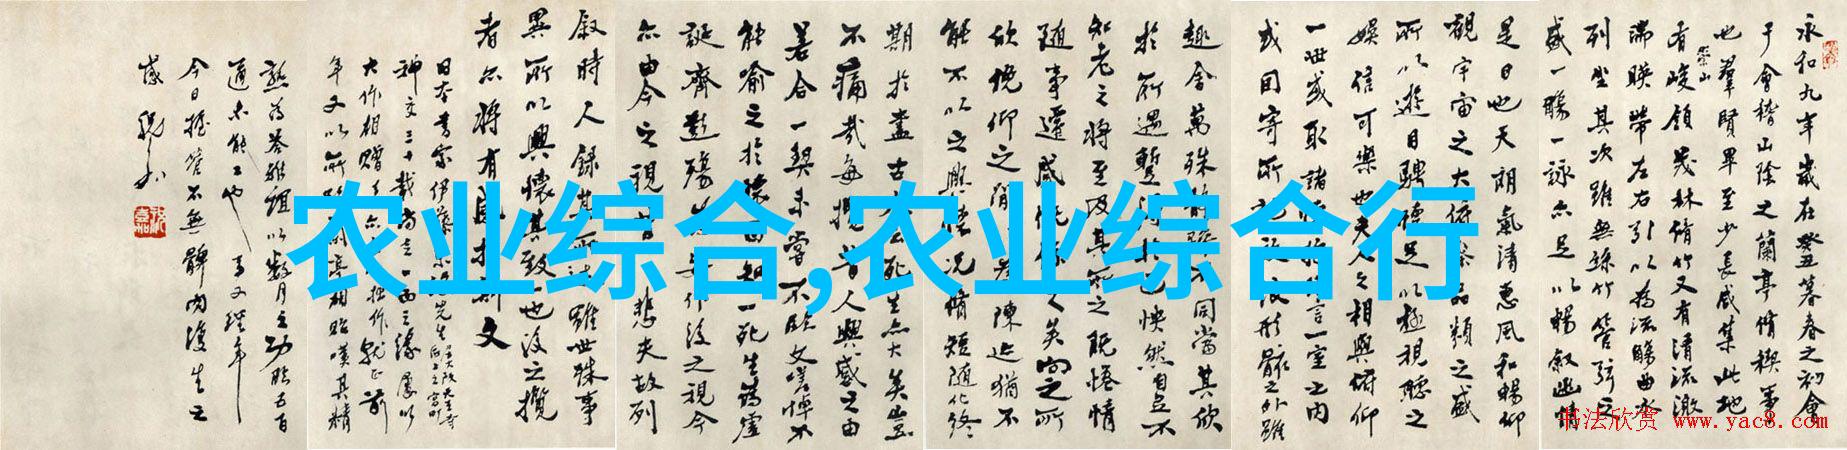 农业综合,农业综合行
永和九年歲在癸丑暮春之初會
于會稽山陰之蘭亭脩禊事
也羣賢畢至少長咸集此地
崇山
有峻領茂林脩竹又有清流激
湍暎帶左右引以為流觴曲水
列坐其次雖無絲竹管弦之
盛一觴一詠亦足以暢敘幽情
是日也天朗氣清惠風和暢仰
觀宇宙之大俯察品類之盛
所以遊目騁懷足以極視聽之
娛信可樂也夫人之相與俯仰
一世或取諸言一室之內
或因寄所形骸之外雖
趣舍萬殊同當其欣
於所遇暫快然自足不
知老之將至及其所之既惓情
隨事遷感慨矣向之所
欣俛仰之間陳迹猶不
能不以之興懷況脩短隨化終
期於盡古死生亦大矣豈
不痛哉每攬昔人興感之由
若合一契未嘗不臨文嗟悼不
能喻之於懷知一死生為虛
誕齊彭殤作後之視今
亦由今之視昔悲夫故列
敘時人錄其雖世殊事
異所以興懷其致一也後之攬
者亦將有感於斯文
日本書家伊藤先生
神交三十載尚一面之緣屢以
大作相贈
年又以相貽嘆其精
熟為以數月之功臨五百
適未能也
今日握管不無
書法欣赏 www.yac8.com